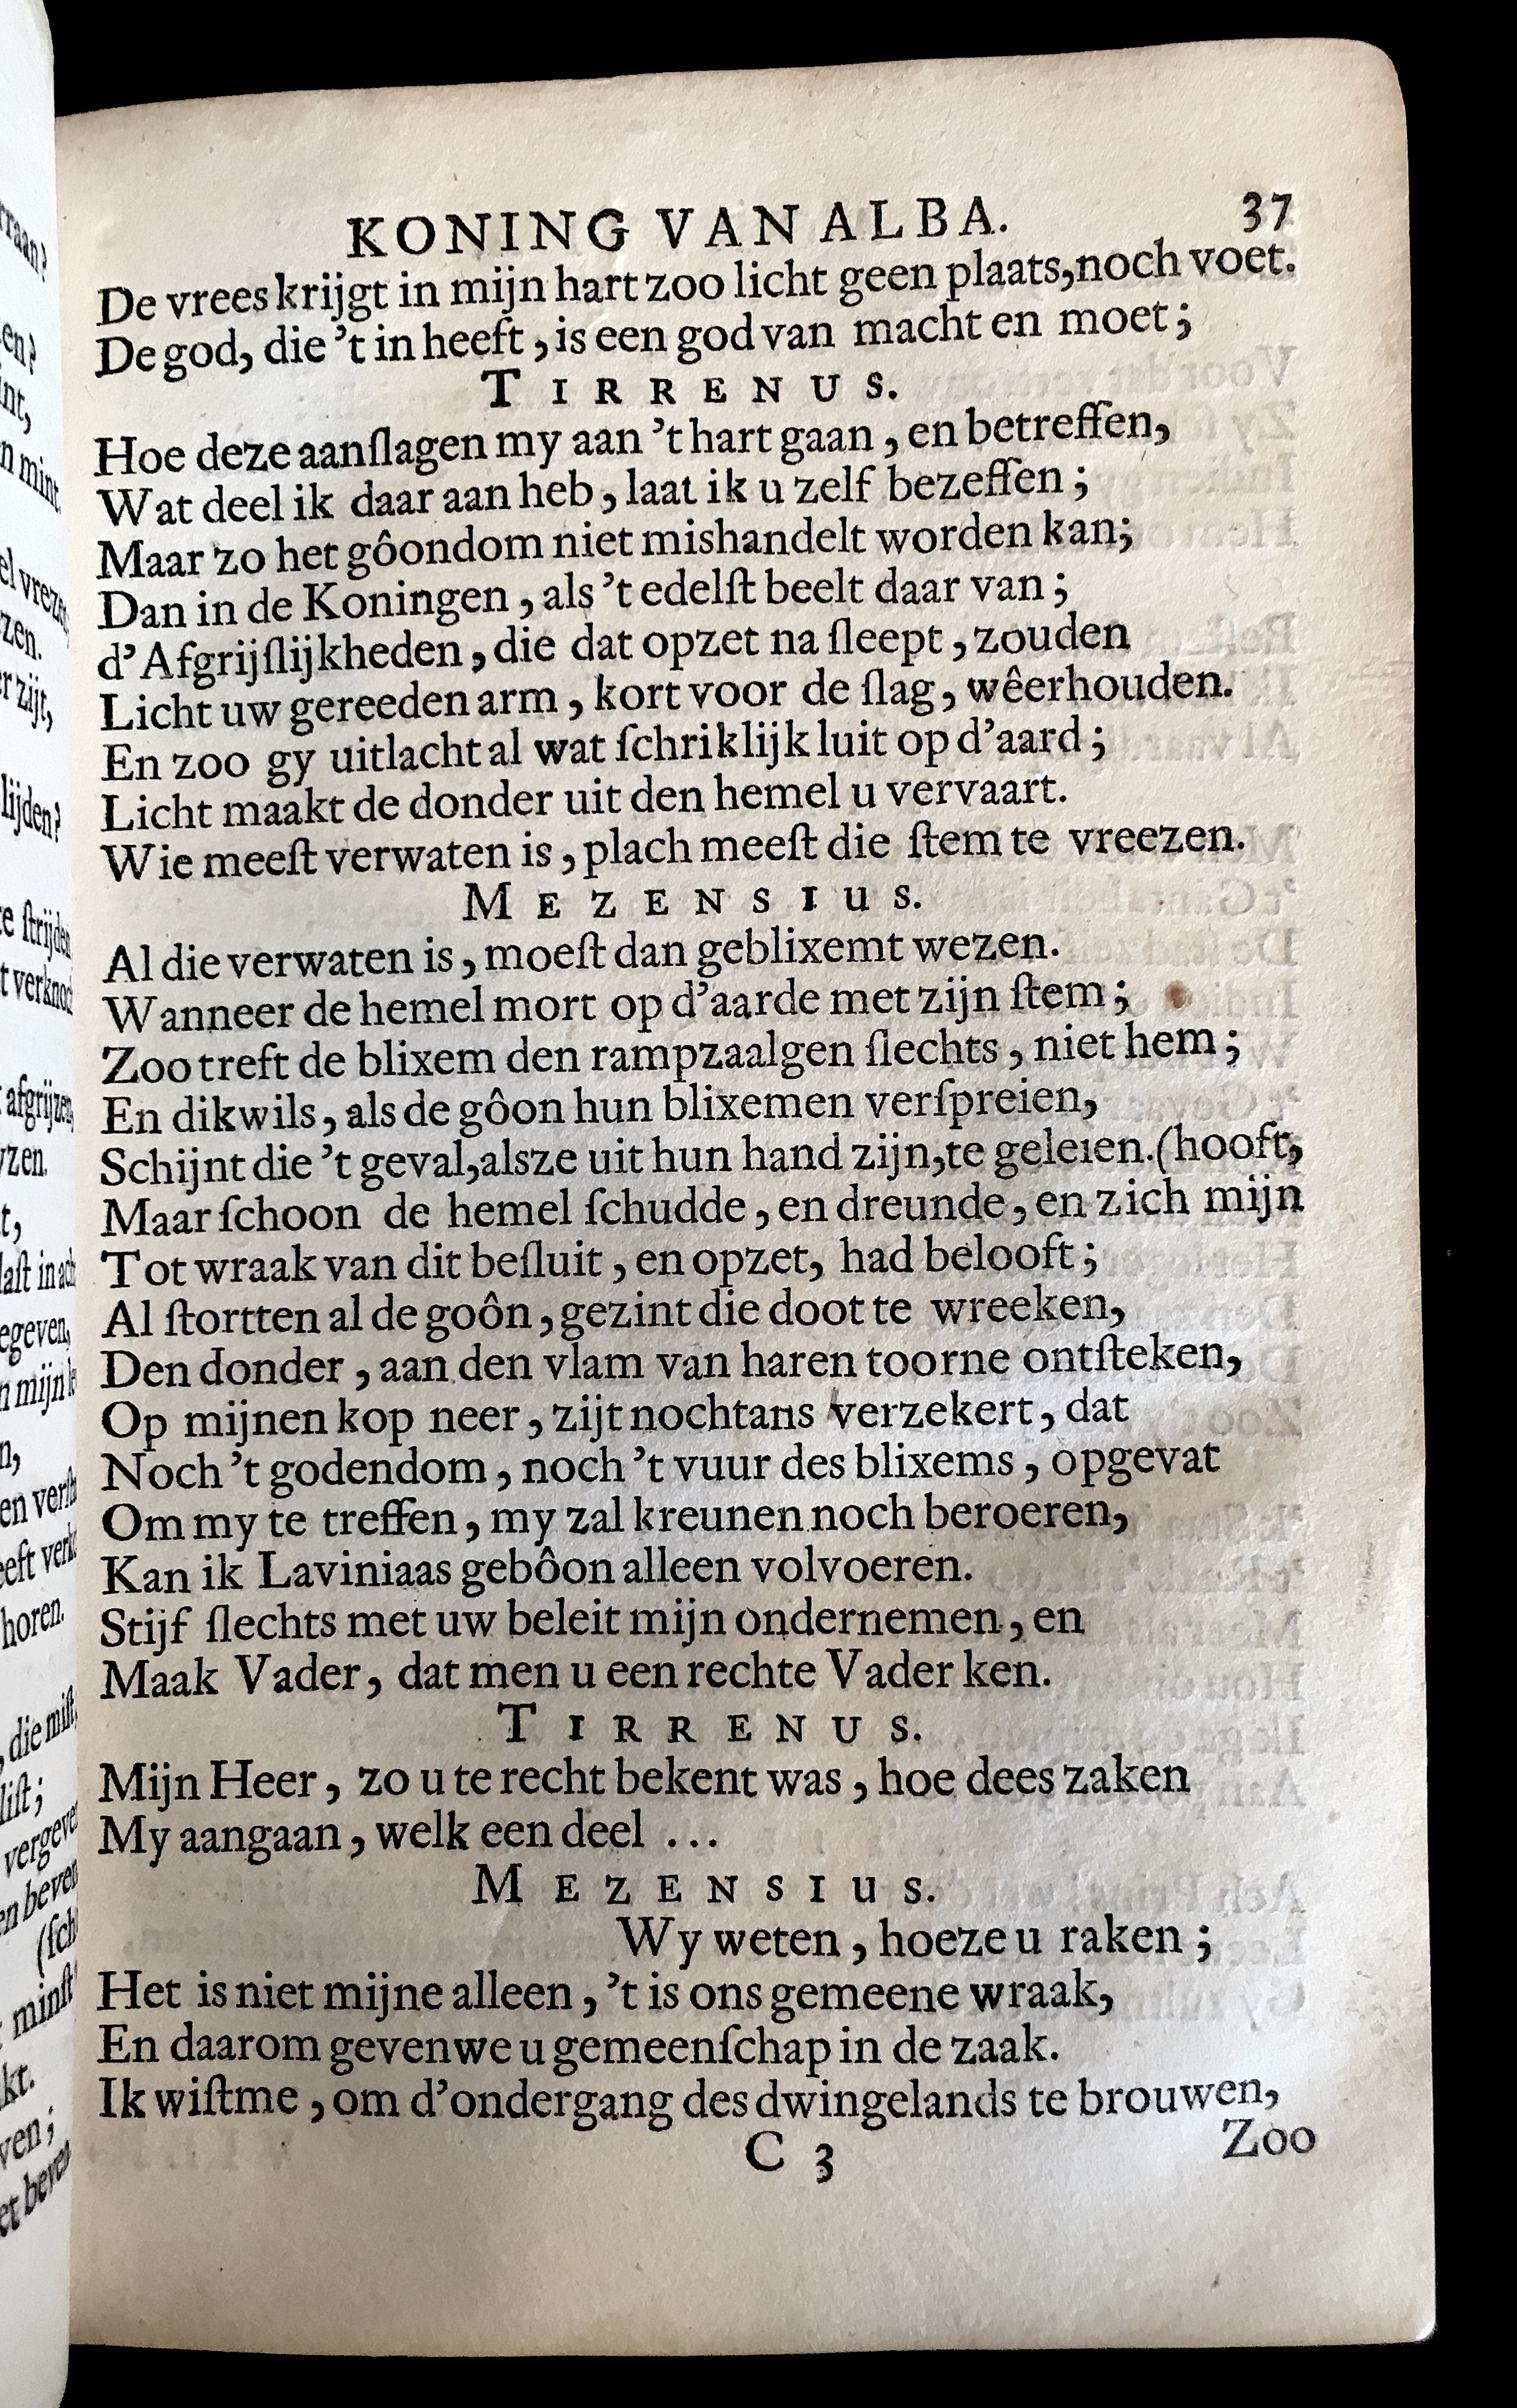 KONING VAN ALBA. 37
De vrees krijgt in mijn hart zoo licht geen plaats, noch voet.
De god, die 't in heeft, is een god van macht en moet;
TIRRENUS.
Hoe deze aanſlagen my aan 't hart gaan, en betreffen,
Wat deel ik daar aan heb, laat ik u zelf bezeffen;
Maar zo het gôondom niet mishandelt worden kan;
Dan in de Koningen, als 't edelſt beelt daar van;
d'Afgrijſlijkheden, die dat opzet na ſleept, zouden
Licht uw gereeden arm, kort voor de ſlag, wêerhouden.
En zoo gy uitlacht al wat ſchriklijk luit op d'aard;
Licht maakt de donder uit den hemel u vervaart.
Wie meeſt verwaten is, plach meeſt die ſtem te vreezen.
MEZENSIUS.
Al die verwaten is, moeſt dan geblixemt wezen.
Wanneer de hemel mort op d'aarde met zijn ſtem;
Zoo treft de blixem den rampzaalgen ſlechts, niet hem;
En dikwils, als de gôon hun blixemen verſpreien,
Schijnt die 't geval, alsze uit hun hand zijn, te geleien. (hooft,
Maar ſchoon de hemel ſchudde, en dreunde, en zich mijn
Tot wraak van dit beſluit, en opzet, had belooft;
Al ſtortten al de goôn, gezint die doot te wreeken,
Den donder, aan den vlam van haren toorne ontſteken,
Op mijnen kop neer, zijt nochtans verzekert, dat
Noch 't godendom, noch 't vuur des blixems, opgevat
Om my te treffen, my zal kreunen noch beroeren,
Kan ik Laviniaas gebôon alleen volvoeren.
Stijf ſlechts met uw beleit mijn ondernemen, en
Maak Vader, dat men u een rechte Vader ken.
TIRRENUS.
Mijn Heer, zo u te recht bekent was, hoe dees zaken
My aangaan, welk een deel ...
MEZENSIUS.
Wy weten, hoeze u raken;
Het is niet mijne alleen, 't is ons gemeene wraak,
En daarom gevenwe u gemeenſchap in de zaak.
Ik wiſtme, om d'ondergang des dwingelands te brouwen,
C 3 Zoo